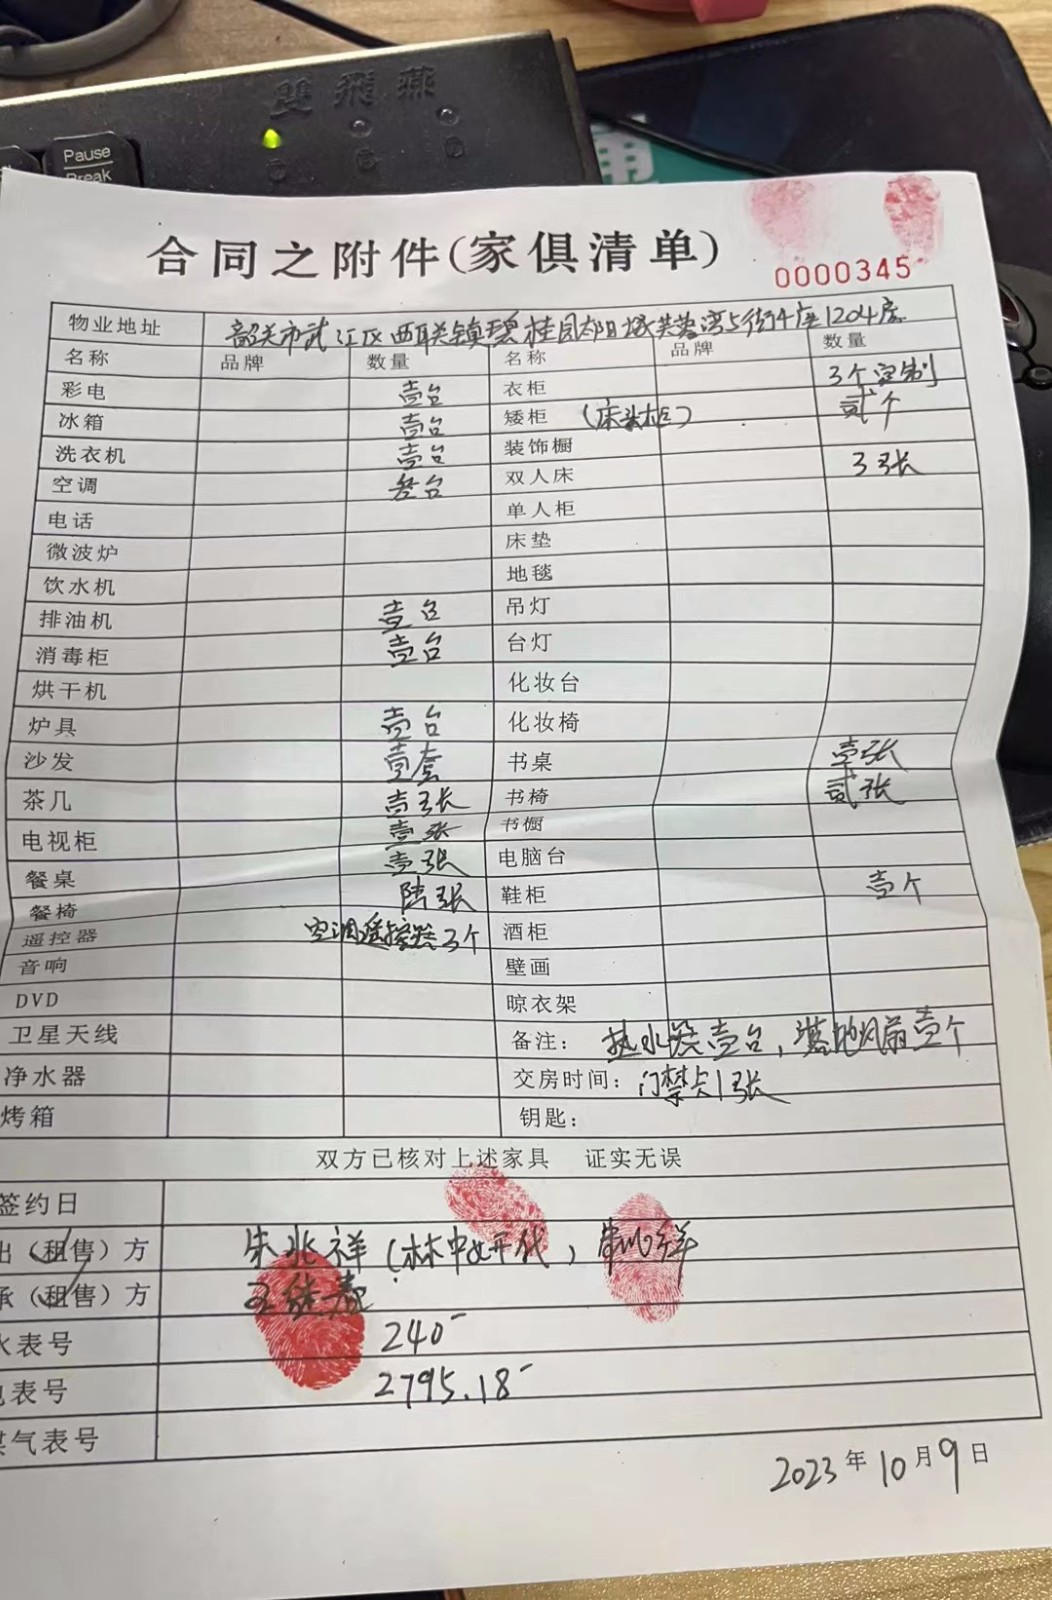 雙飛燕
Pause
Break
合同之附件(家俱清单)
0000345
物业地址 韶关市武江区西联镇碧桂园太阳城芙蓉湾5街4座1204房
名称 品牌 数量 名称 品牌 数量
彩电 壹台 衣柜 3个定制
冰箱 壹台 矮柜 (床头柜) 贰个
洗衣机 壹台 装饰橱
空调 叁台 双人床 3张
电话 单人柜
微波炉 床垫
饮水机 地毯
排油机 壹台 吊灯
消毒柜 壹台 台灯
烘干机 化妆台
炉具 壹台 化妆椅
沙发 壹套 书桌 壹张
茶几 壹张 书椅 贰张
电视柜 壹张 书橱
餐桌 壹张 电脑台
餐椅 陆张 鞋柜 壹个
遥控器 空调遥控器3个 酒柜
音响 壁画
DVD 晾衣架
卫星天线 备注: 热水器壹台,落地风扇壹个
净水器 交房时间: 门禁卡1张
烤箱 钥匙:
双方已核对上述家具 证实无误
签约日
出(租售)方 朱兆祥(林中好代)
承(租售)方
水表号 240
电表号 2795.18
煤气表号
2023年10月9日